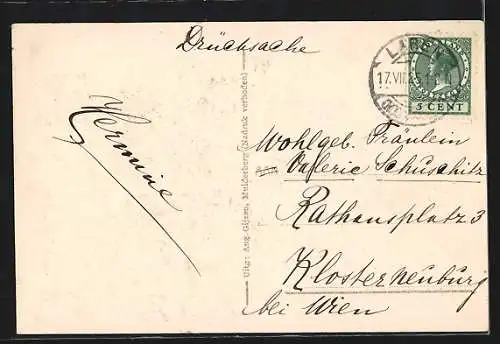 Drücksache
LAREN
17.VII
5 CENT
Hermine
Uitg: Aug. Gijzen, Muiderberg (Nadruk verboden)
Wohlgeb. Fräulein
Valerie Schuschitz
Rathausplatz 3
Klosterneuburg
bei Wien